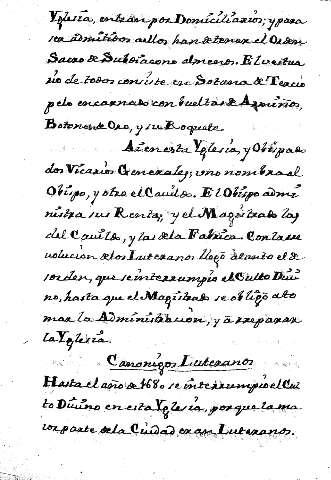 Yglesia, entran por Domiciliarios; y para
ser admitidos a ellos han de tener el Orden
Sacro de Subdiacono al menos. El vestua
rio de todos consiste en Sotana de Tercio
pelo encarnado con bueltas de Armiños,
Botones de Oro, y su Roquete.
Ai en esta Yglesia, y Obispado
dos Vicarios Generales; uno nombra el
Obispo, y otro el Cavildo. El Obispo admi
nistra sus Rentas, y el Magistrado las
del Cavildo, y las de la Fabrica. Con la re
volucion de los Luteranos llegó à tanto el de
sorden, que se interrumpió el Culto Divi
no, hasta que el Magistrado se obligó a to
mar la Administración, y à reparar
la Yglesia.
Canonigos Luteranos
Hasta el año de 1680 se interrumpió el Cul
to Divino en esta Yglesia, porque la ma
ior parte de la Ciudad eran Luteranos.